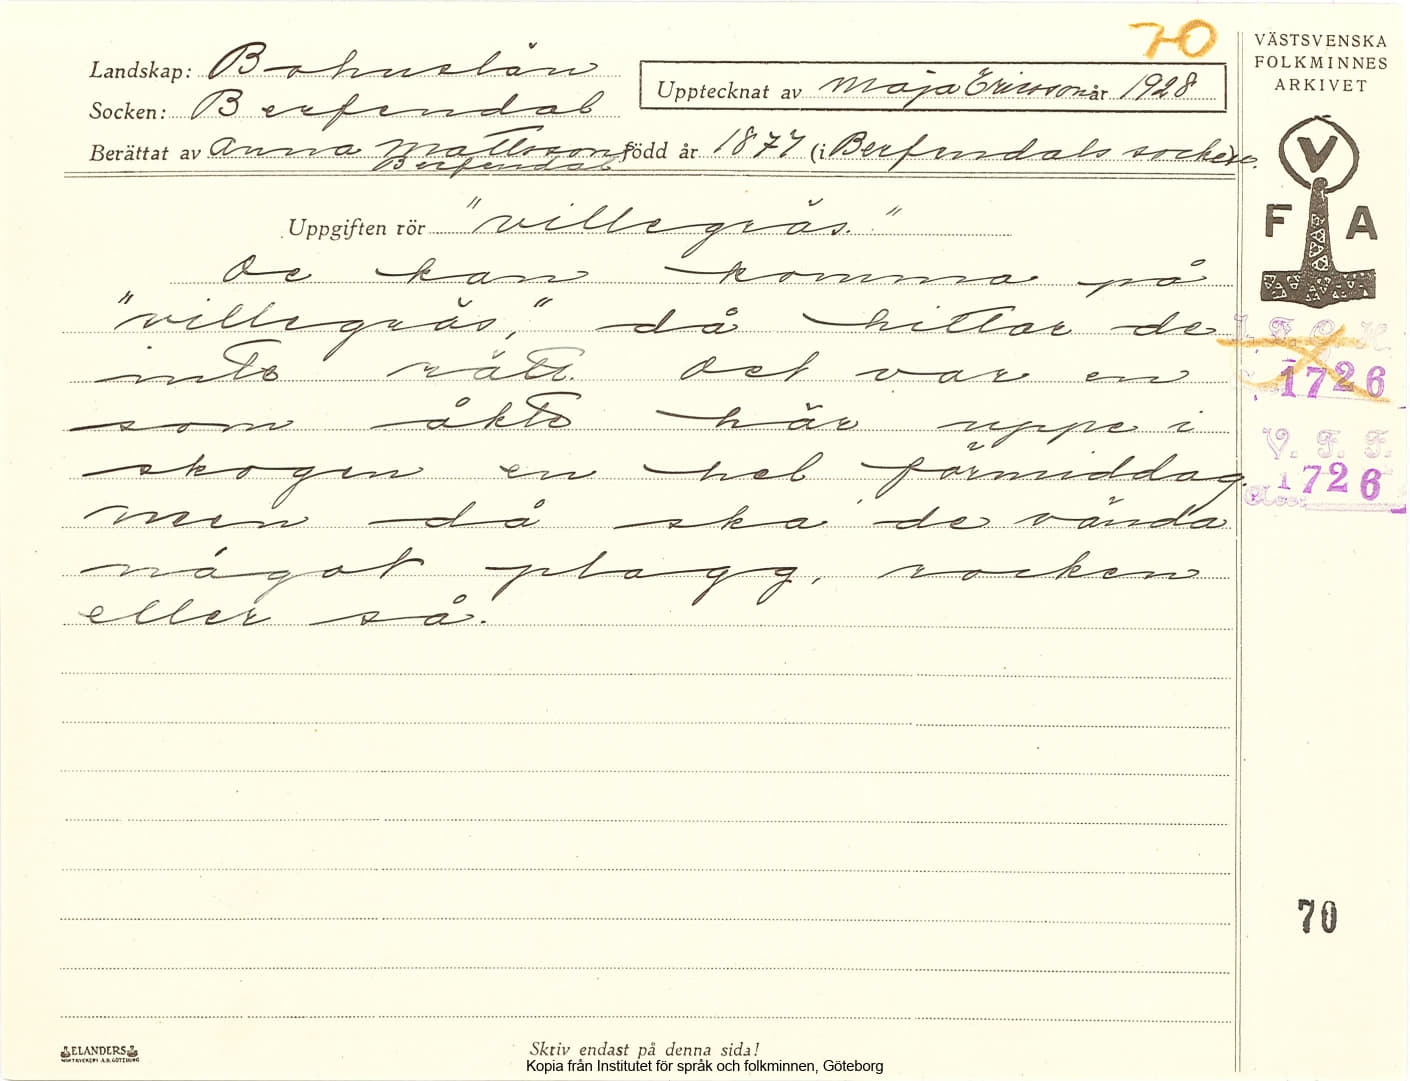 70
VÄSTSVENSKA
FOLKMINNES
ARKIVET
Landskap: Bohuslän
Upptecknat av Maja Ericsson år 1928
Socken: Berfendal
Berättat av Anna Mattsson född år 1877 (i Berfendals socken)
Berfendal
V
F A
Uppgiften rör "villegräs."
De kan komma på
"villegräs," då hittar de
inte rätt. Det var en
som åkte här uppe i
skogen en hel förmiddag.
men då ska de vända
något plagg, rocken
eller så.
I. F. G. H.
1726
V. F. F.
1726
70
ELANDERS
Skriv endast på denna sida!
Kopia från Institutet för språk och folkminnen, Göteborg